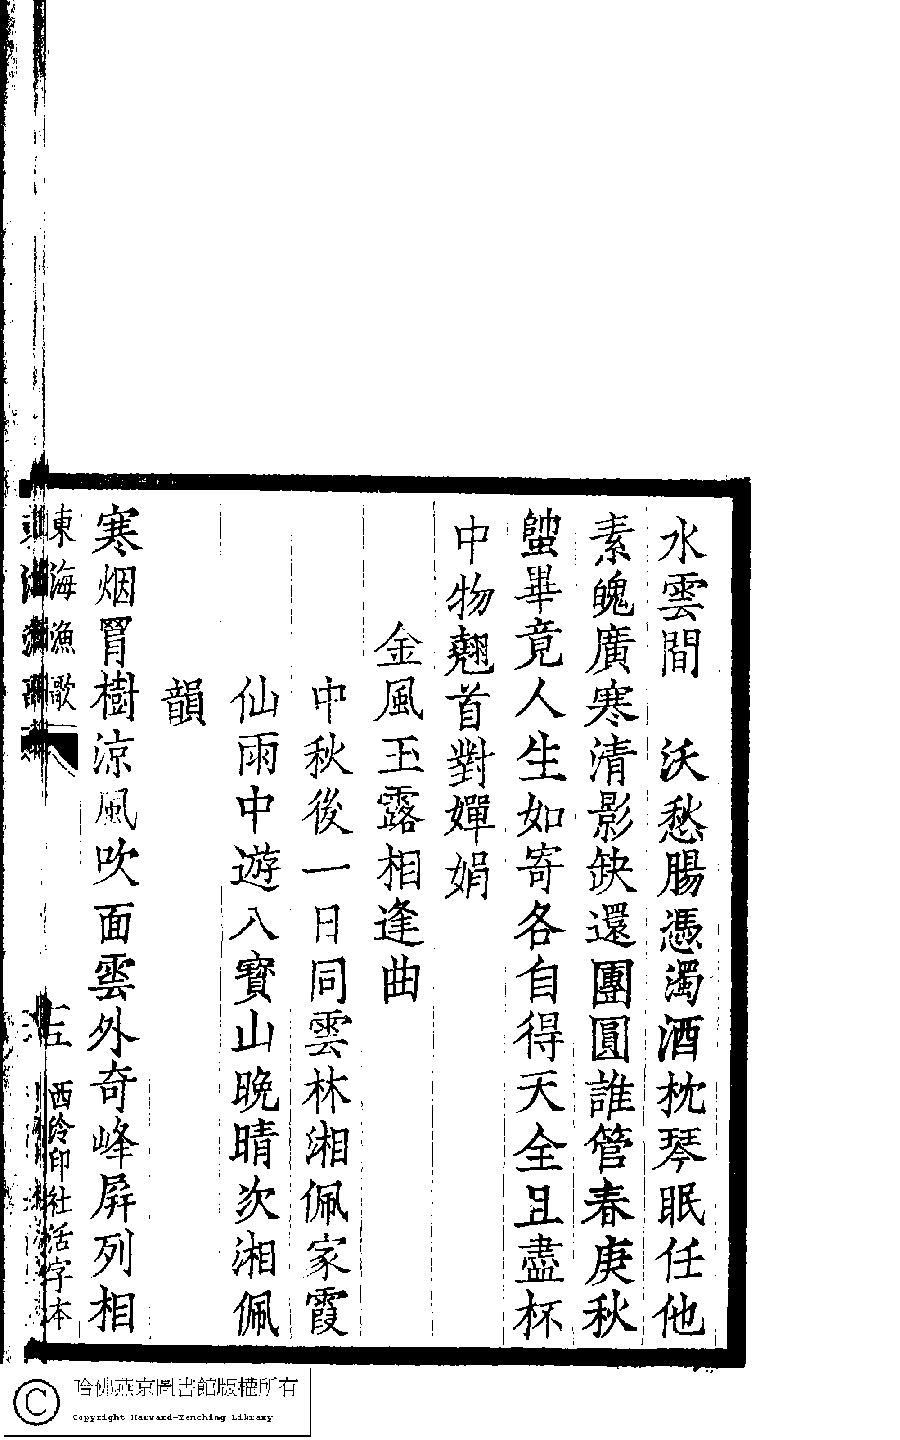 水雲間　沃愁腸憑濁酒枕琴眠任他
素魄廣寒清影缺還團圓誰管春庚秋
蟀畢竟人生如寄各自得天全且盡杯
中物翹首對嬋娟
金風玉露相逢曲
中秋後一日同雲林湘佩家霞
仙雨中遊八寶山晚晴次湘佩
韻
寒烟罥樹涼風吹面雲外奇峰屏列相
東海漁歌
西泠印社活字本
哈佛燕京圖書館版權所有
Copyright Harvard-Yenching Library